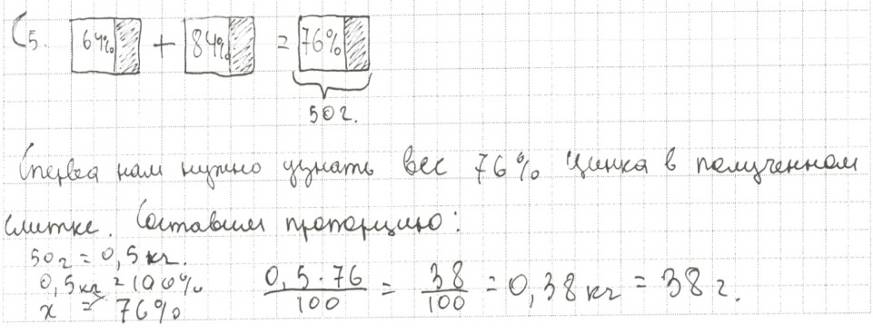 C5. 64% + 84% = 76%
50 г.
Сперва нам нужно узнать вес 76% цинка в полученном
слитке. Составим пропорцию:
50г = 0,5 кг.
0,5кг = 100%
x = 76%
0,5 · 76 / 100 = 38 / 100 = 0,38 кг = 38 г.